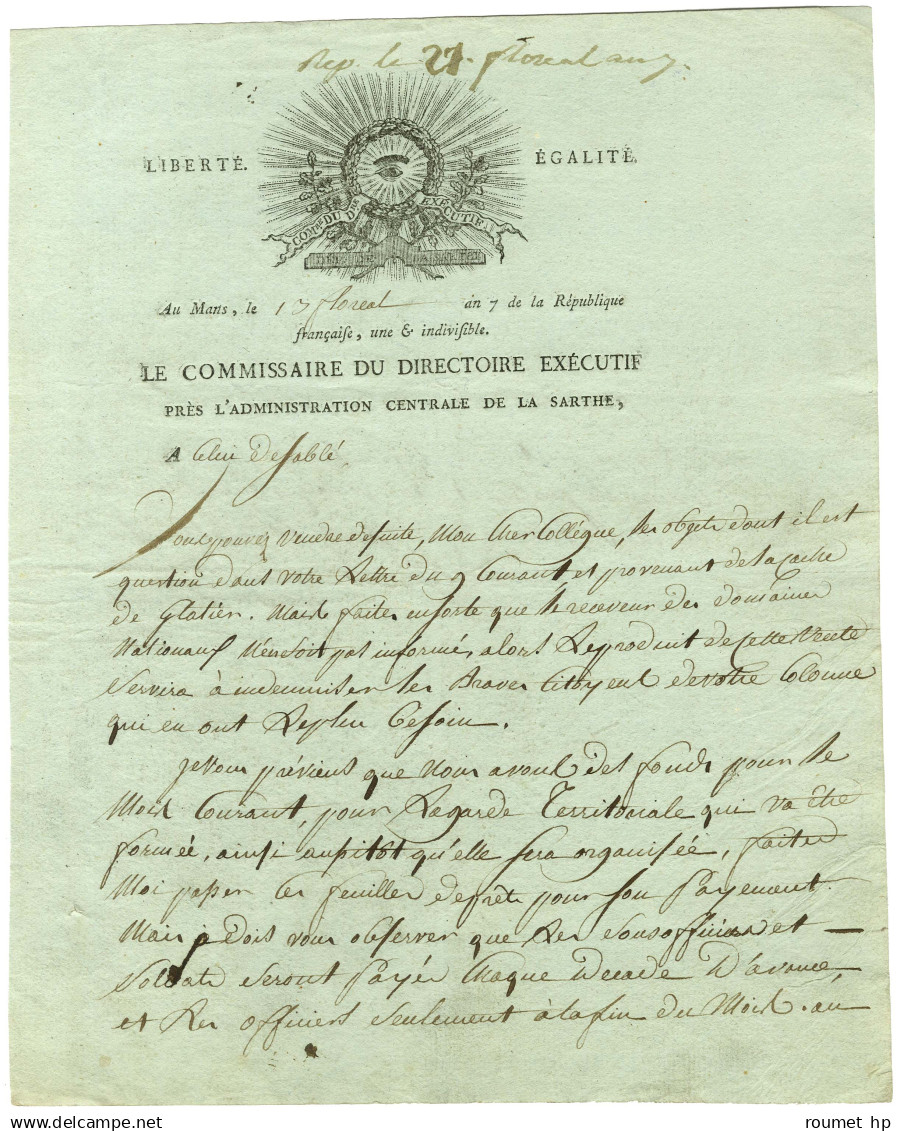 Rep. le 27. floreal an 7.
LIBERTÉ. ÉGALITÉ.
COMre. DU Dre. EXÉCUTIF
Au Mans, le 13 floreal an 7 de la République
françaiſe, une & indiviſible.
LE COMMISSAIRE DU DIRECTOIRE EXÉCUTIF
PRÈS L'ADMINISTRATION CENTRALE DE LA SARTHE,
A Celui de Sablé
Vous pouvez Vendre de suite, Mon Cher Collègue, les objets dont il est
question dans votre Lettre du 9 Courant et provenant de la cache
de Glatier. Mais faites en sorte que le receveur des domaines
Nationaux n'en soit pas informé, alors Le produit de Cette Vente
servira à indemniser les Braves Citoyens de votre Colonne
qui en ont Le plus besoin.
Je vous préviens que Nous avons des fonds pour le
Mois Courant, pour La garde Territoriale qui va être
formée, ainsi aussitôt qu'elle sera organisée, faites
Moi passer les feuilles de prêt pour son Payement.
Mais je dois vous observer que Les sousofficiers et
Soldats seront Payés Chaque Decade D'avance,
et Les officiers seulement à la fin du Mois. au
roumet hp